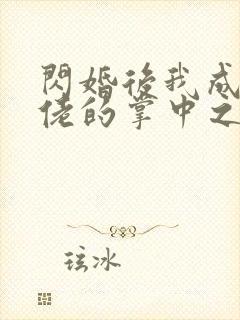 閃婚後我成
佬的掌中之
玹冰